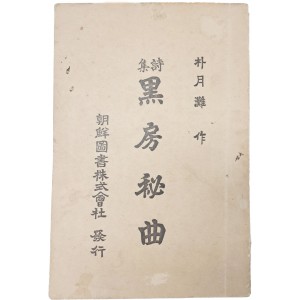 朴月灘 作
詩集
黑房秘曲
朝鮮圖書株式會社 發行